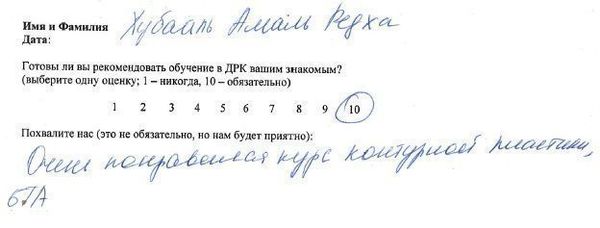 Имя и Фамилия Хубааль Амаль Редха
Дата:
Готовы ли вы рекомендовать обучение в ДРК вашим знакомым?
(выберите одну оценку; 1 – никогда, 10 – обязательно)
1 2 3 4 5 6 7 8 9 10
Похвалите нас (это не обязательно, но нам будет приятно):
Очень понравился курс контурной пластики,
БТА